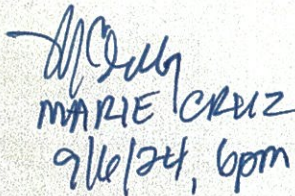 MARIE CRUZ
9/6/24, 6pm